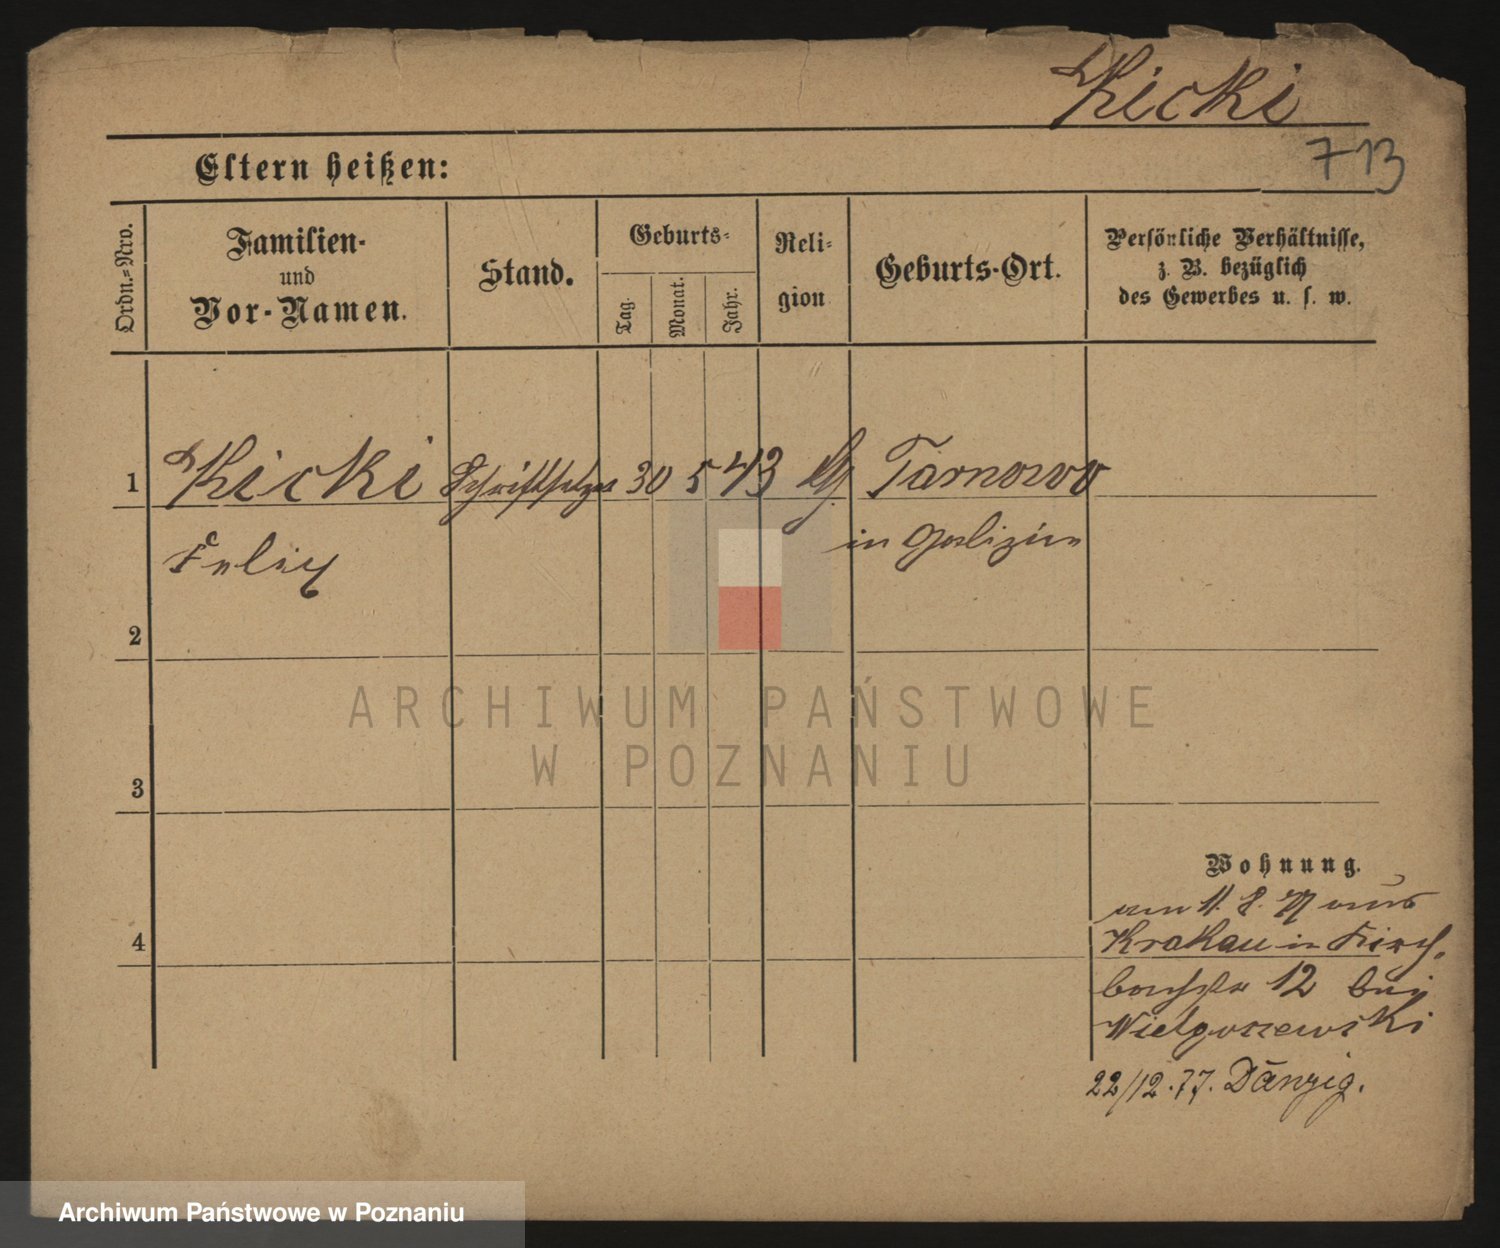 Kicki
713
Eltern heißen:
Ordn.-Nro.
Familien-
und
Vor-Namen.
Stand.
Geburts-
Tag.
Monat.
Jahr.
Reli-
gion
Geburts-Ort.
Persönliche Verhältnisse,
z. B. bezüglich
des Gewerbes u. s. w.
1 Kicki Schriftsetzer 30 5 43 Tarnowo
Felix in Galizien
2
ARCHIWUM PAŃSTWOWE
W POZNANIU
3
Wohnung.
am 11. 8. 77 aus
4 Krakau in Fisch-
12 bei
Wielgoszewski
22/12.77. Danzig.
Archiwum Państwowe w Poznaniu